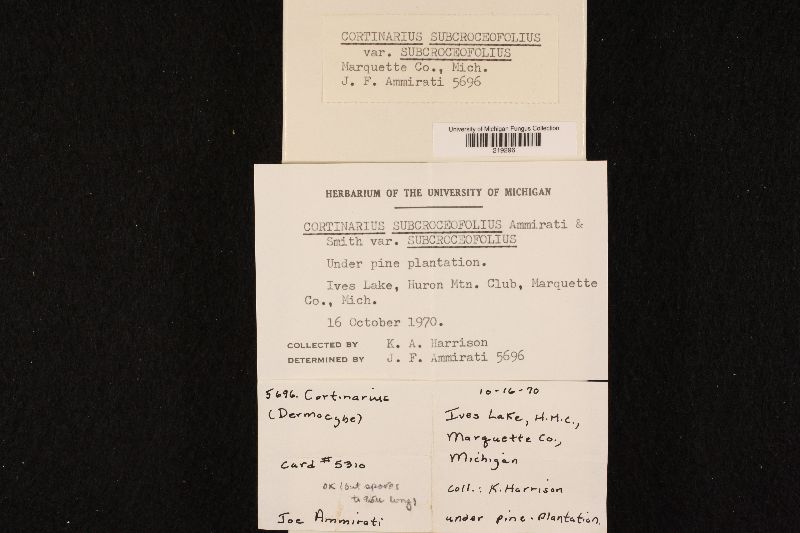 CORTINARIUS SUBCROCEOFOLIUS
var. SUBCROCEOFOLIUS
Marquette Co., Mich.
J. F. Ammirati 5696
University of Michigan Fungus Collection
HERBARIUM OF THE UNIVERSITY OF MICHIGAN
CORTINARIUS SUBCROCEOFOLIUS Ammirati &
Smith var. SUBCROCEOFOLIUS
Under pine plantation.
Ives Lake, Huron Mtn. Club, Marquette
Co., Mich.
16 October 1970.
COLLECTED BY K. A. Harrison
DETERMINED BY J. F. Ammirati 5696
5696. Cortinarius
(Dermocybe)
Card #5310
OK (but spores
Joe Ammirati
10-16-70
Ives Lake, H.M.C.,
Marquette Co.,
Michigan
Coll.: K. Harrison
under pine. Plantation.